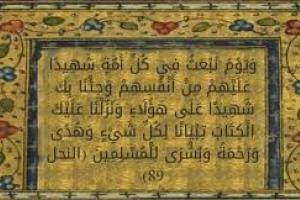 وَيَوْمَ نَبْعَثُ فِي كُلِّ أُمَّةٍ شَهِيدًا
عَلَيْهِمْ مِنْ أَنْفُسِهِمْ وَجِئْنَا بِكَ
شَهِيدًا عَلَى هَؤُلَاءِ وَنَزَّلْنَا عَلَيْكَ
الْكِتَابَ تِبْيَانًا لِكُلِّ شَيْءٍ وَهُدًى
وَرَحْمَةً وَبُشْرَى لِلْمُسْلِمِينَ (النحل
89)